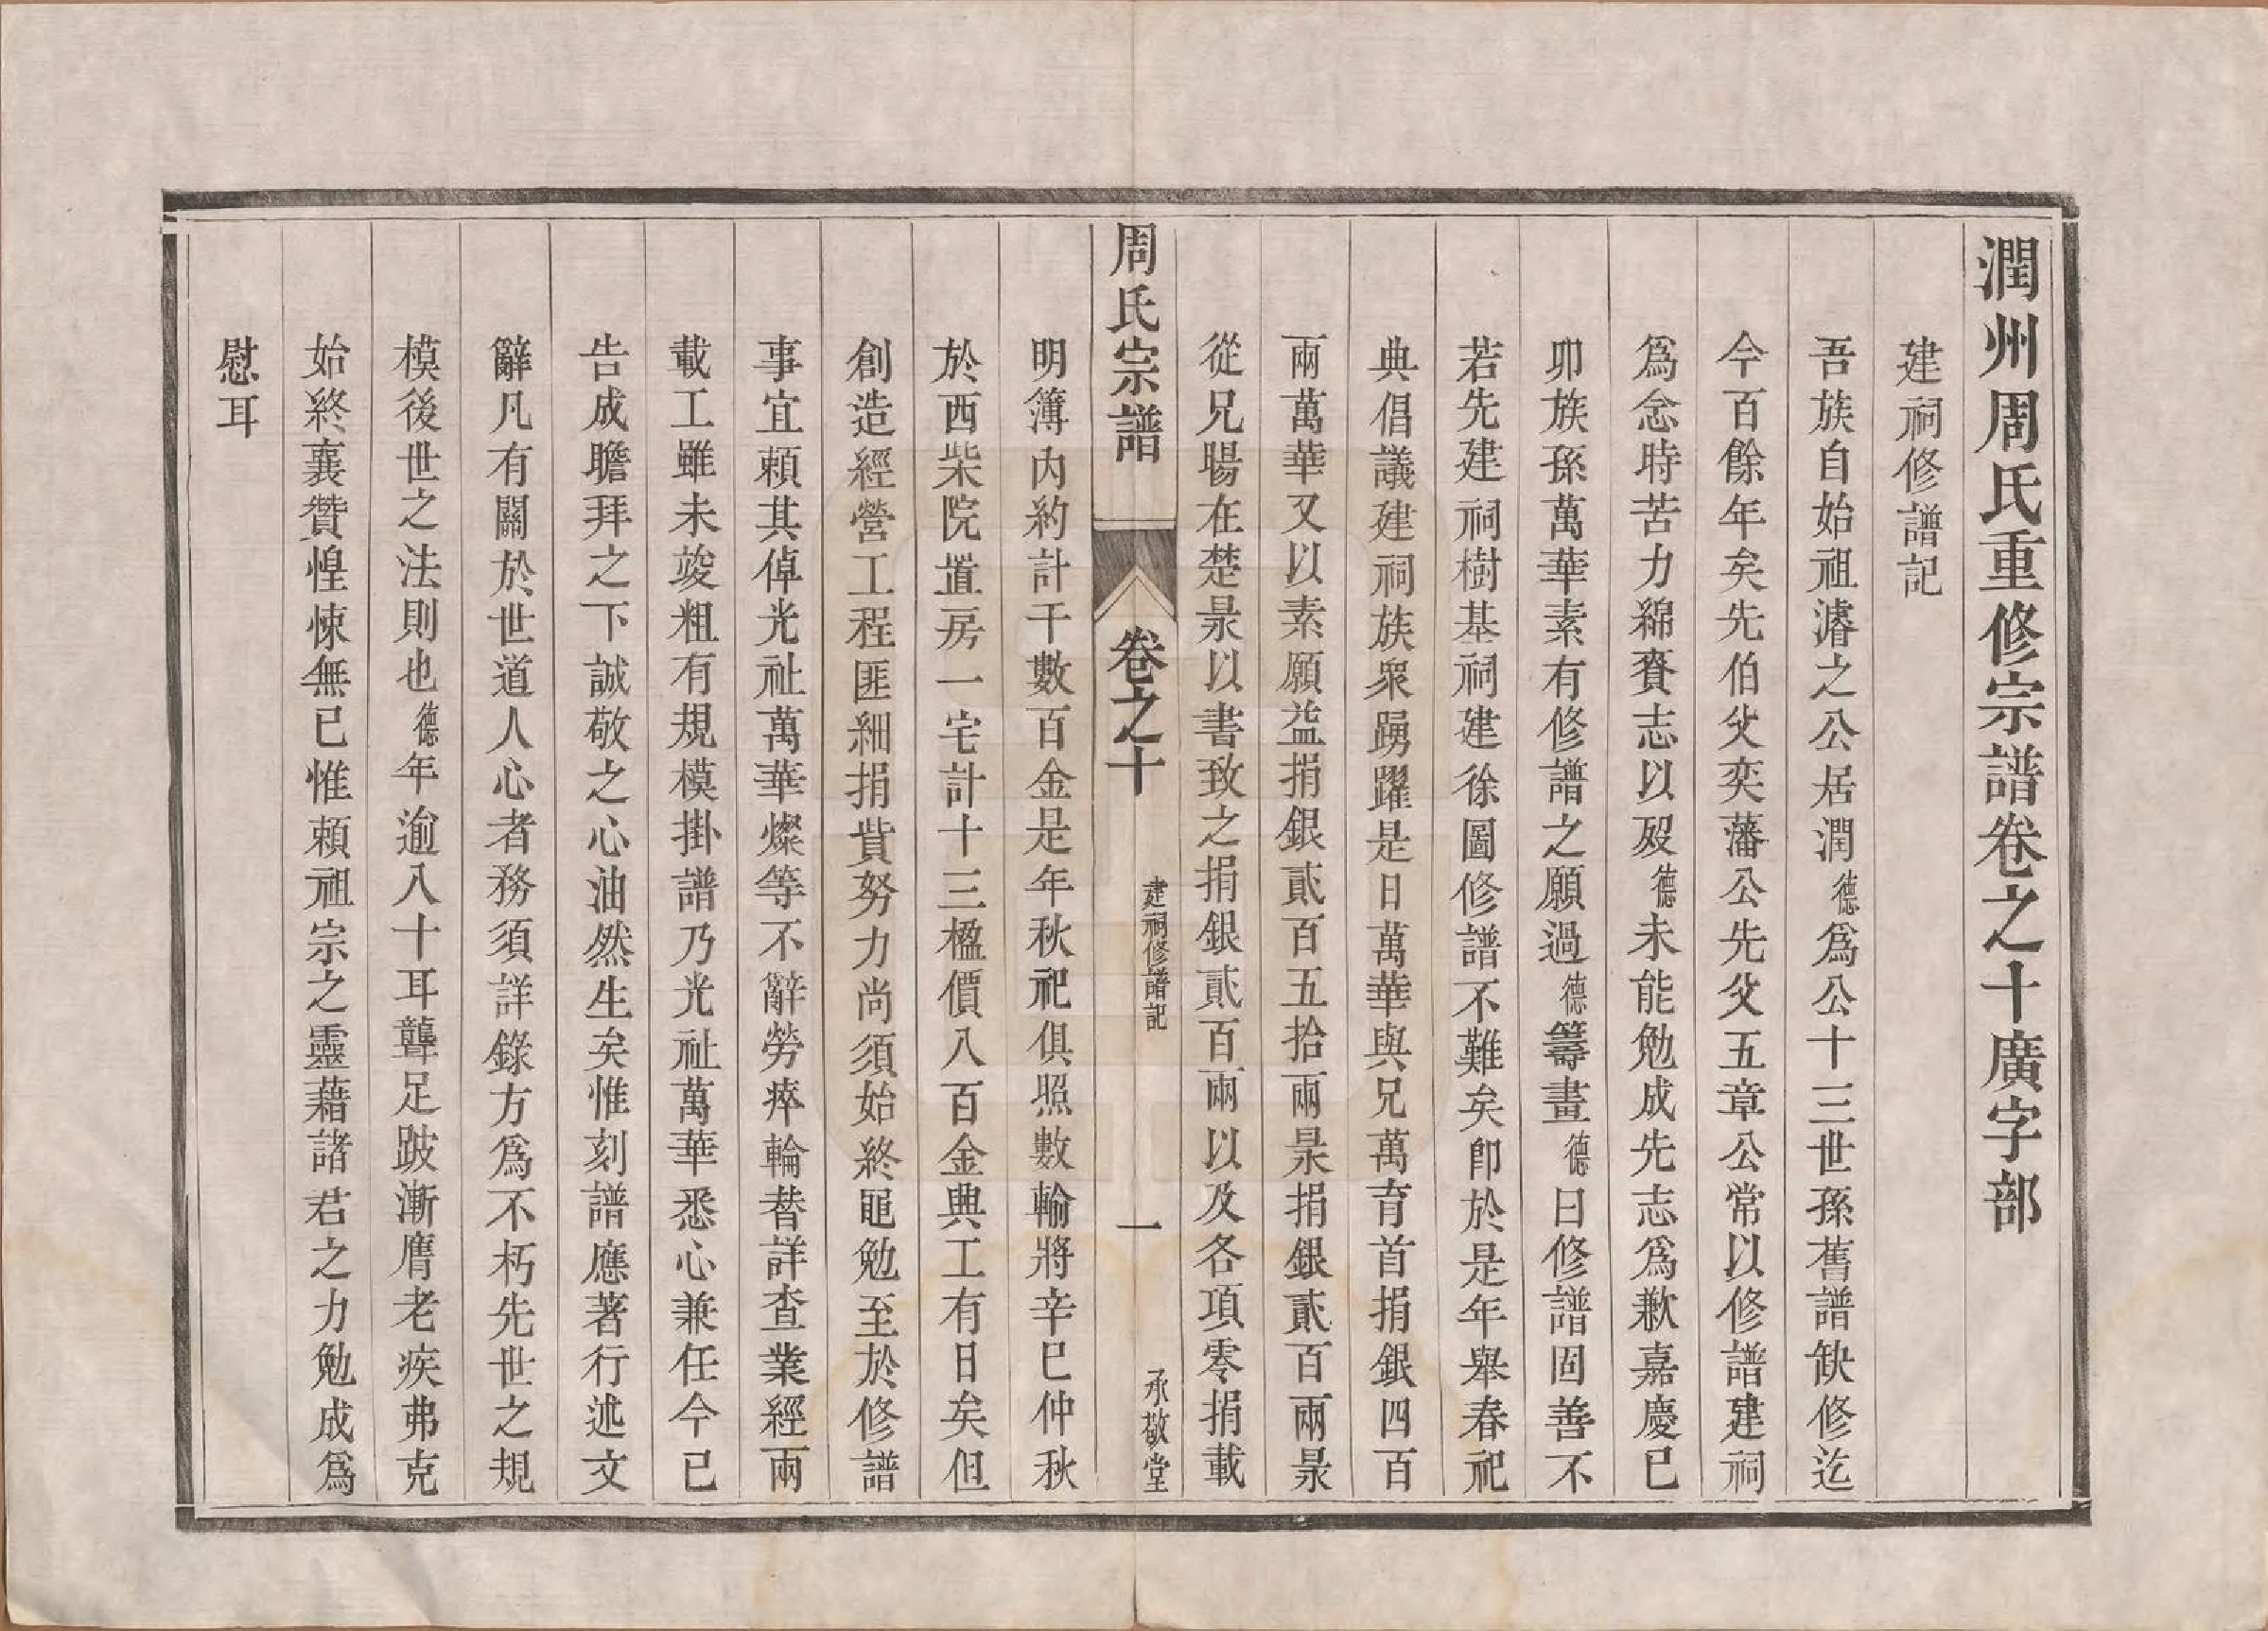 潤州周氏重修宗譜卷之十廣字部
建祠修譜記
吾族自始祖濬之公居潤德爲公十三世孫舊譜缺修迄
今百餘年矣先伯父奕藩公先父五章公常以修譜建祠
爲念時苦力綿賫志以歿德未能勉成先志爲歉嘉慶已
卯族孫萬華素有修譜之願過德籌畫德曰修譜固善不
若先建祠樹基祠建徐圖修譜不難矣卽於是年舉春祀
典倡議建祠族衆踴躍是日萬華與兄萬育首捐銀四百
兩萬華又以素願益捐銀貳百五拾兩景捐銀貳百兩景
從兄暘在楚景以書致之捐銀貳百兩以及各項零捐載
周氏宗譜 卷之十 建祠修譜記 一 承敬堂
明簿內約計千數百金是年秋祀俱照數輸將辛巳仲秋
於西柴院置房一宅計十三楹價八百金典工有日矣但
創造經營工程匪細捐貲努力尚須始終黽勉至於修譜
事宜賴其倬光祉萬華燦等不辭勞瘁輪替詳查業經兩
載工雖未竣粗有規模掛譜乃光祉萬華悉心兼任今已
告成瞻拜之下誠敬之心油然生矣惟刻譜應著行述文
辭凡有關於世道人心者務須詳錄方爲不朽先世之規
模後世之法則也德年逾八十耳聾足跛漸膺老疾弗克
始終襄贊惶悚無已惟賴祖宗之靈藉諸君之力勉成爲
慰耳